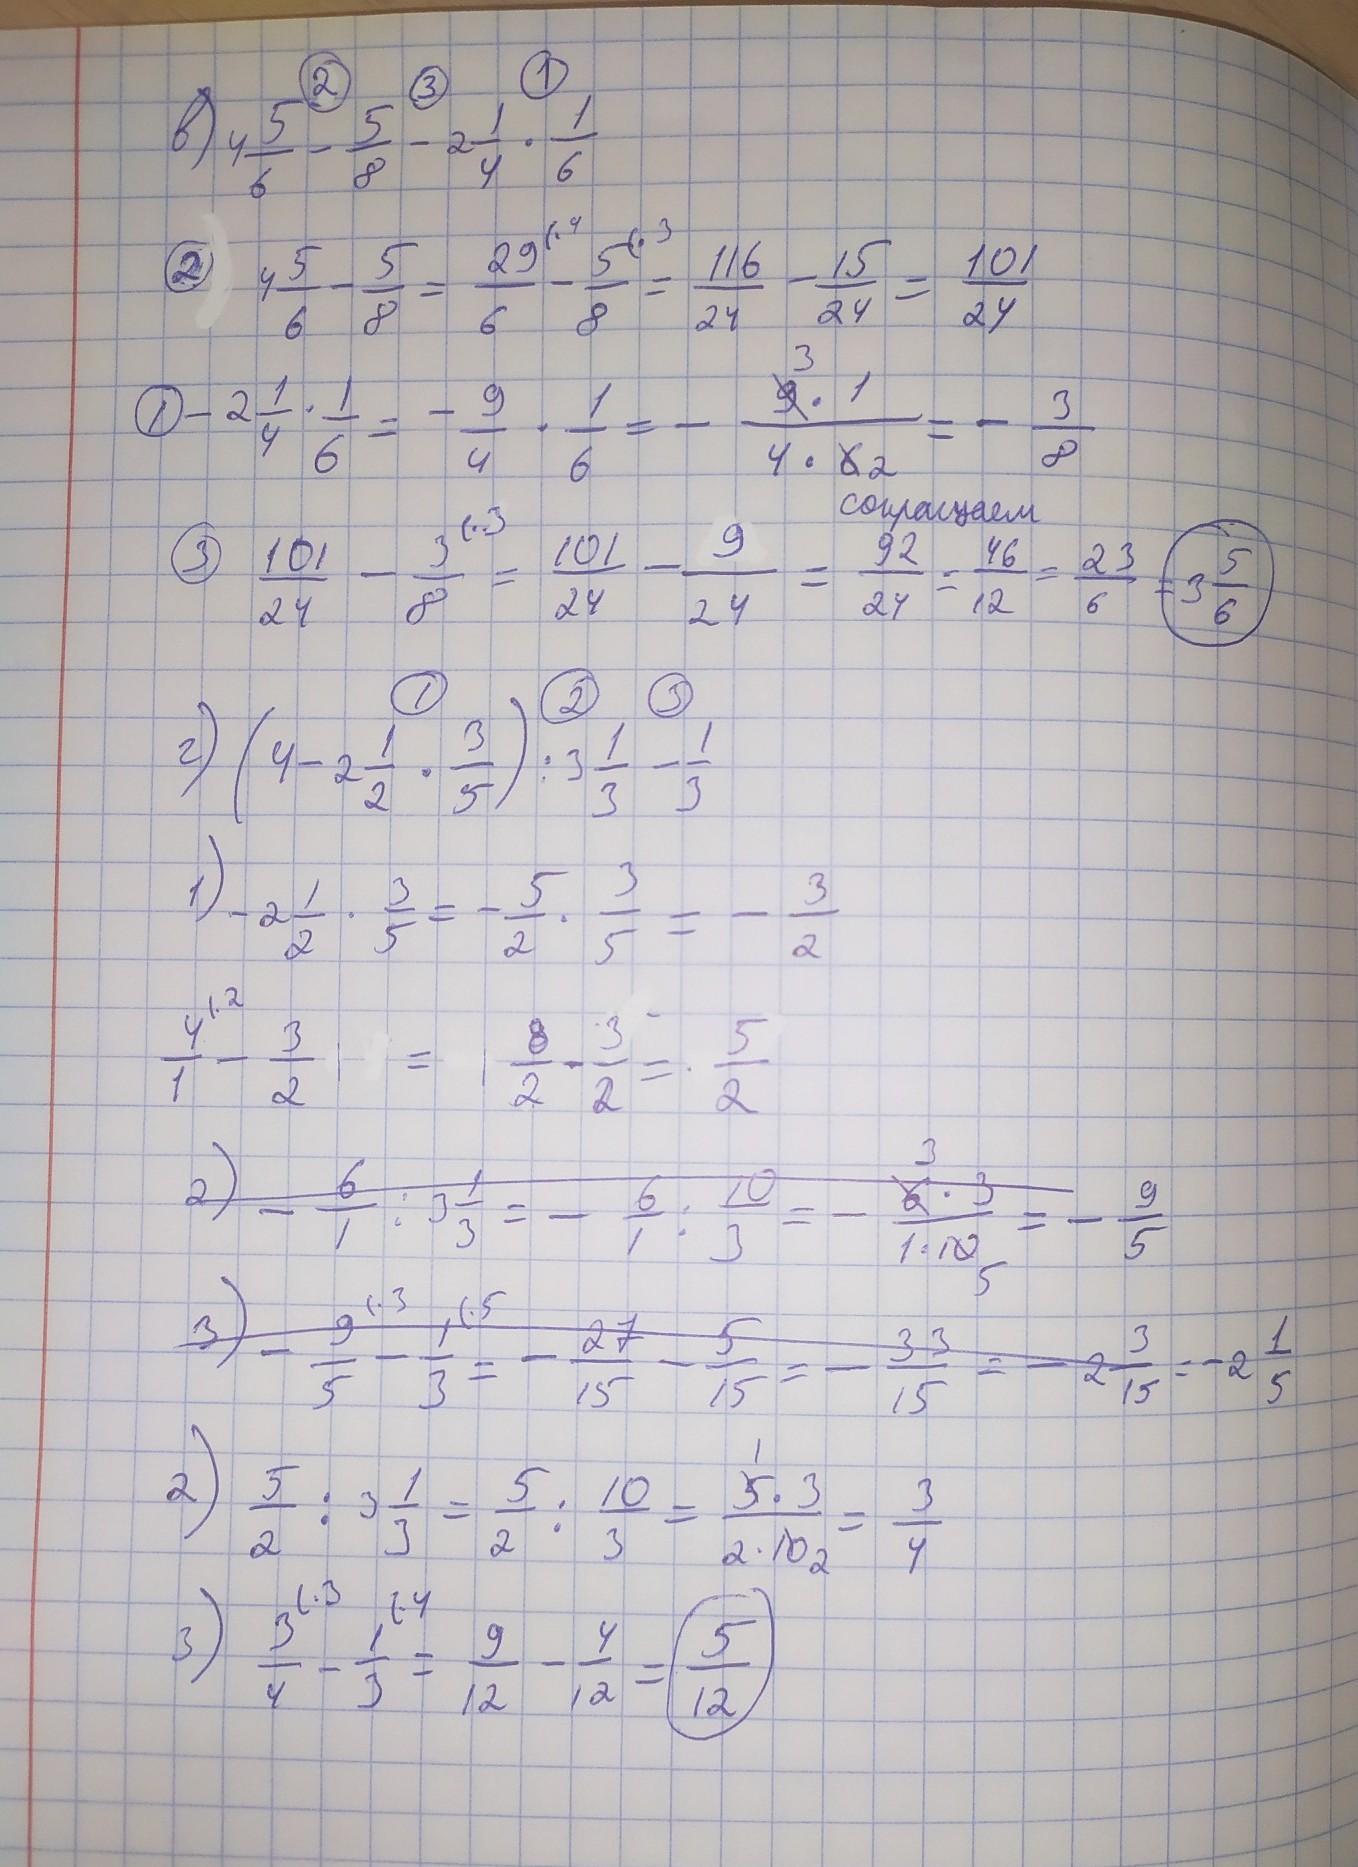 ② ③ ①
в) 4 5/6 - 5/8 - 2 1/4 · 1/6
② 4 5/6 - 5/8 = 29/6 (·4 - 5/8 (·3 = 116/24 - 15/24 = 101/24
① - 2 1/4 · 1/6 = - 9/4 · 1/6 = - 9 3 · 1 / 4 · 6 2 = - 3/8
сокращаем
③ 101/24 - 3/8 (·3 = 101/24 - 9/24 = 92/24 = 46/12 = 23/6 = 3 5/6
① ② ③
г) (4 - 2 1/2 · 3/5) : 3 1/3 - 1/3
1) - 2 1/2 · 3/5 = - 5/2 · 3/5 = - 3/2
4/1 (·2 - 3/2 = 8/2 - 3/2 = 5/2
2) - 6/1 : 3 1/3 = - 6/1 : 10/3 = - 6 3 · 3 / 1 · 10 5 = - 9/5
3) - 9/5 (·3 - 1/3 (·5 = - 27/15 - 5/15 = - 33/15 = - 2 3/15 = - 2 1/5
2) 5/2 : 3 1/3 = 5/2 : 10/3 = 5 1 · 3 / 2 · 10 2 = 3/4
3) 3/4 (·3 - 1/3 (·4 = 9/12 - 4/12 = 5/12